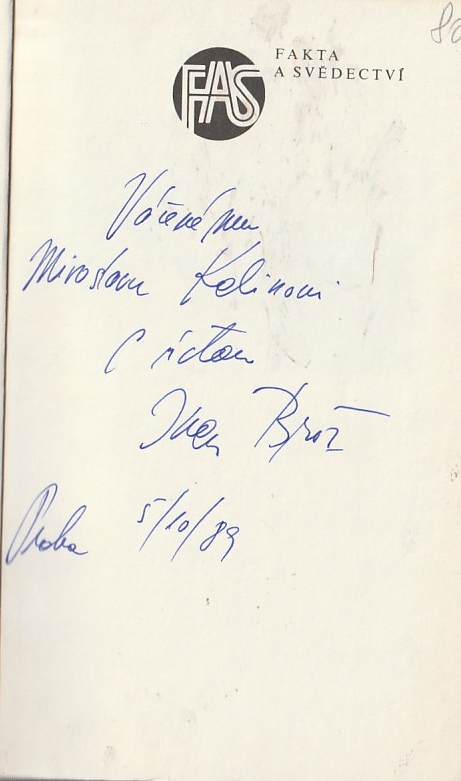 80
FAS
FAKTA
A SVĚDECTVÍ
Váženému
Miroslavu Kalinovi
s úctou
Ivan Brož
Praha 5/10/89